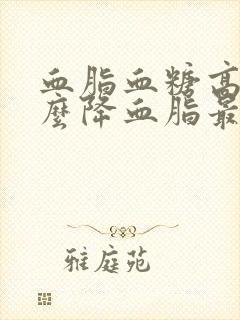 血脂血糖高
麼降血脂最
雅庭苑